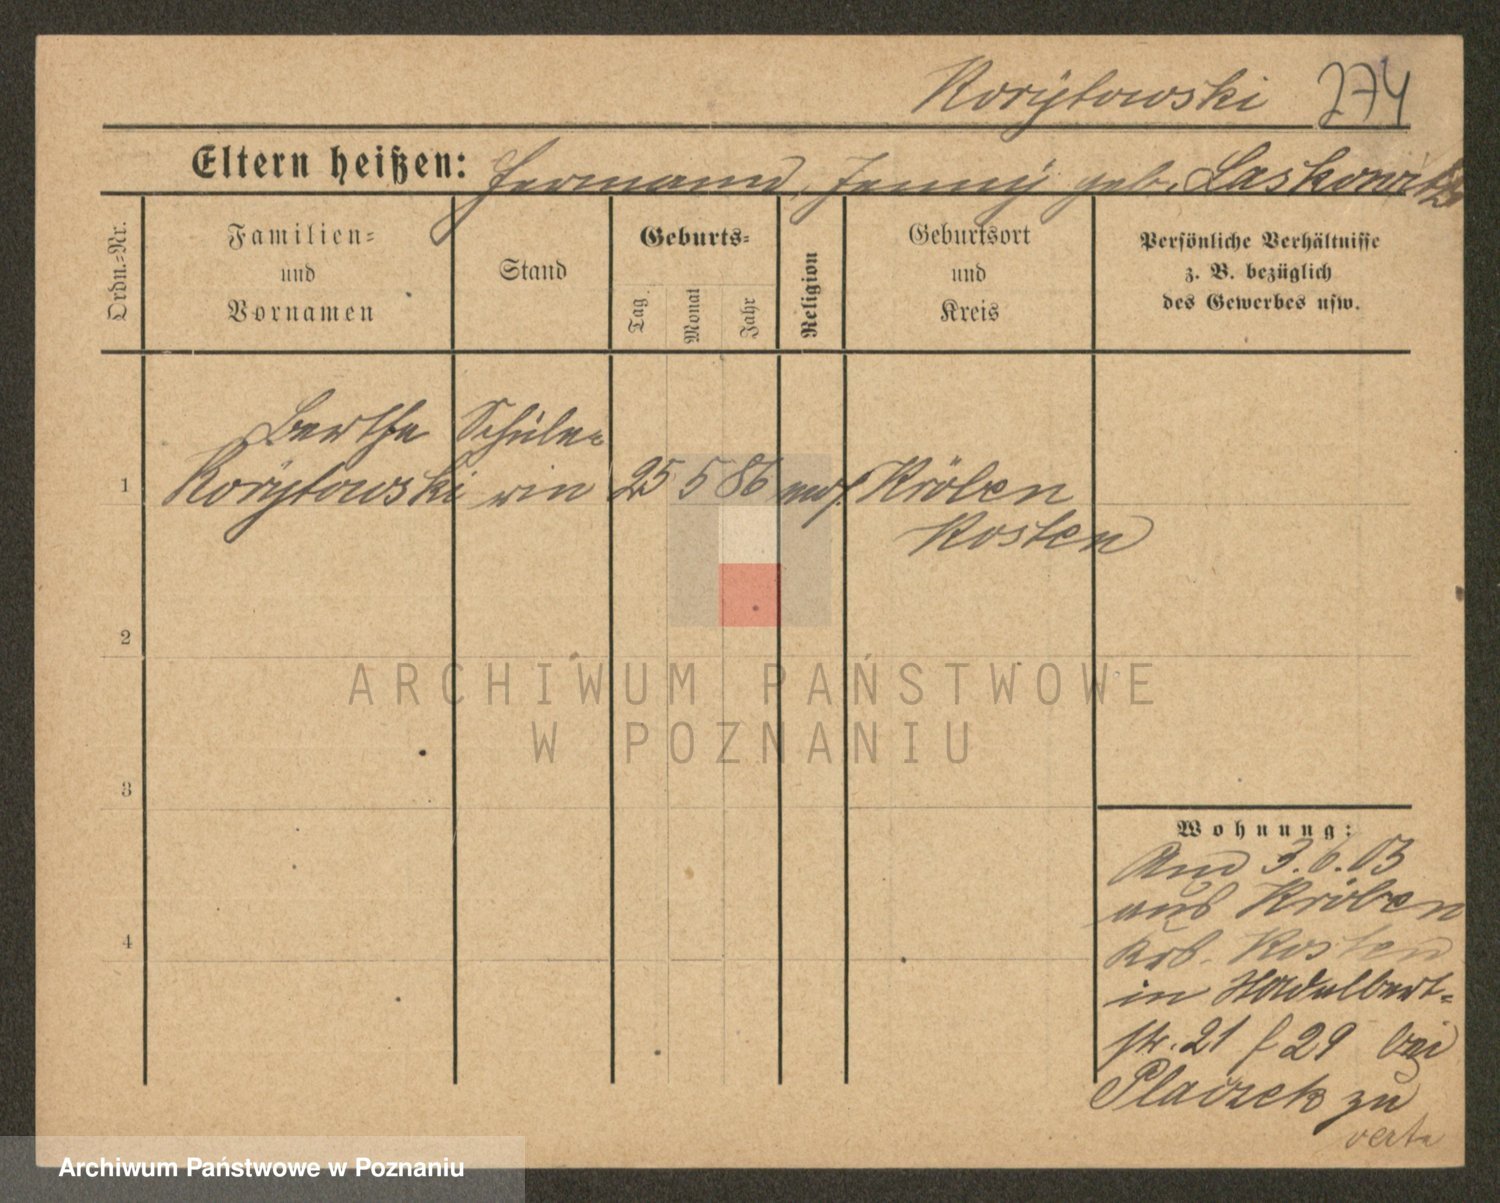 Korÿtowski 274
Eltern heißen: Hermann, Jenny geb. Laskowitz
Ordn.-Nr.
Familien-
und
Vornamen
Stand
Geburts-
Tag
Monat
Jahr
Religion
Geburtsort
und
Kreis
Persönliche Verhältnisse
z. B. bezüglich
des Gewerbes usw.
Berthe Schüle-
1 Korÿtowski rin 25 5 86 mos. Kröben
Kosten
2
3
4
Wohnung:
Am 3.6.03
aus Kröben
Krs. Kosten
in Adalbert-
str. 21 29 bei
Placzek zu
verte
ARCHIWUM PAŃSTWOWE
W POZNANIU
Archiwum Państwowe w Poznaniu